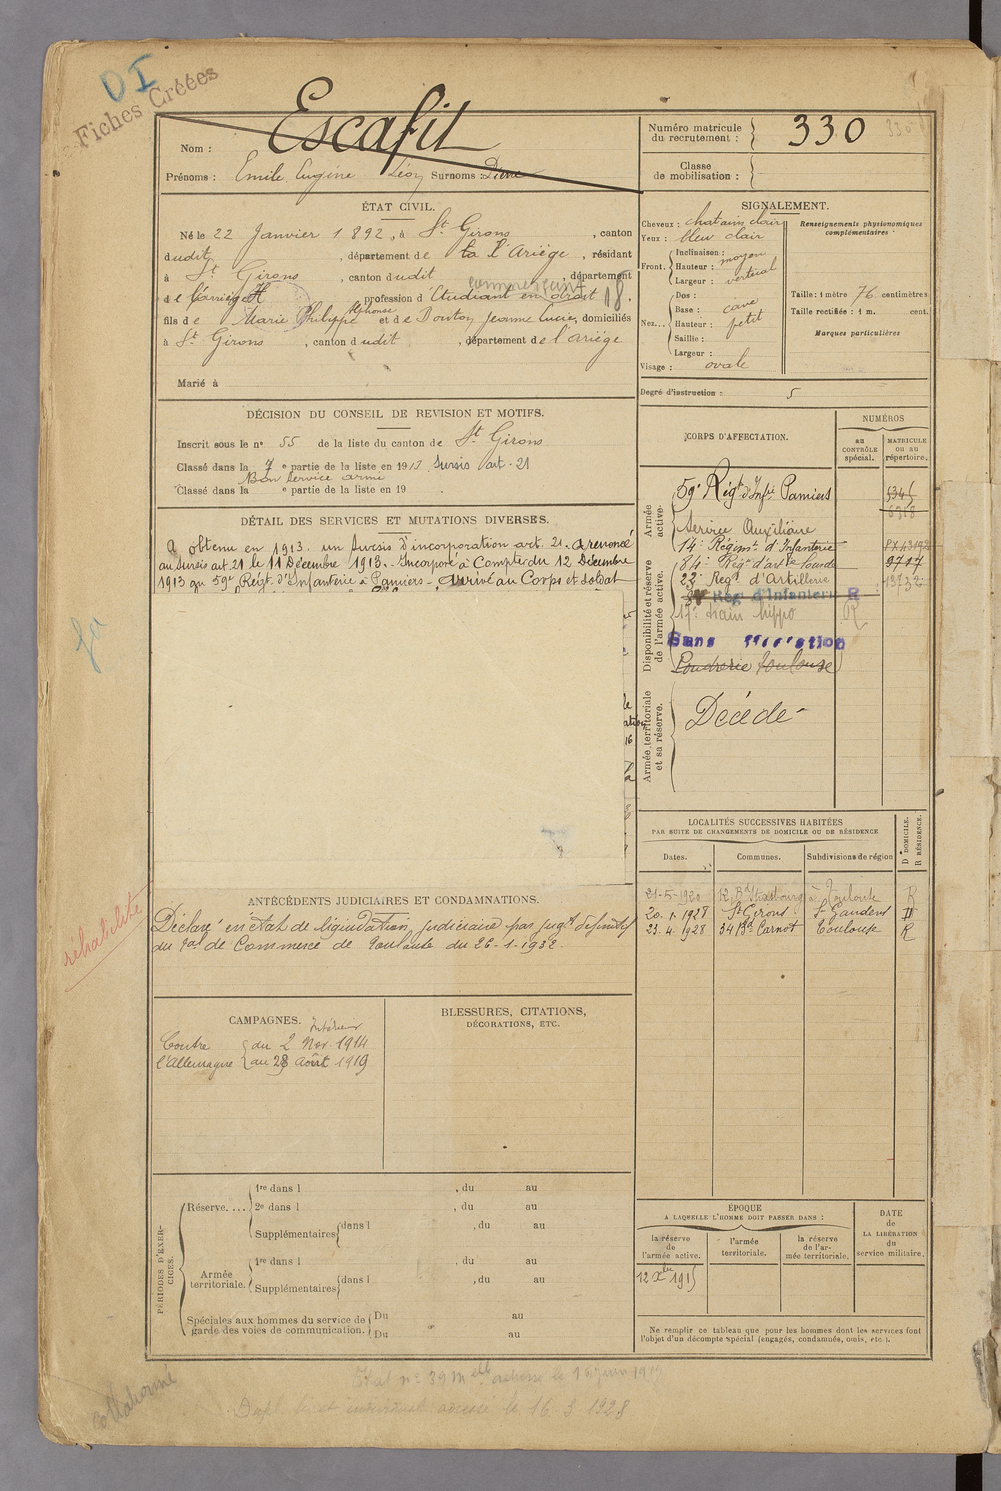 DI
Fiches Créées
Escafit
Nom :
Prénoms : Emile Eugène Léon Surnoms :
Numéro matricule du recrutement : 330
Classe de mobilisation :
ÉTAT CIVIL.
Né le 22 Janvier 1892, à St Girons, canton
dudit, département de l'Ariège, résidant
à St Girons, canton dudit, département
de l'Ariège, profession d'Etudiant en droit
commerçant 18
fils de Marie Philippe Alphonse et de Jeanne Lucie, domiciliés
à St Girons, canton dudit, département de l'ariège
Marié à
SIGNALEMENT.
Cheveux : chatain clair
Yeux : bleu clair
Front. Inclinaison : moyen
Hauteur :
Largeur : vertical
Nez... Dos :
Base : cave
Hauteur : petit
Saillie :
Largeur :
Visage : ovale
Renseignements physionomiques complémentaires
Taille : 1 mètre 76 centimètres
Taille rectifiée : 1 m. cent.
Marques particulières
Degré d'instruction : 5
DÉCISION DU CONSEIL DE REVISION ET MOTIFS.
Inscrit sous le n° 55 de la liste du canton de St Girons
Classé dans la 7 e partie de la liste en 1913, Sursis art. 21
Bon service armé
Classé dans la e partie de la liste en 19
DÉTAIL DES SERVICES ET MUTATIONS DIVERSES.
A obtenu en 1913. un sursis d'incorporation art. 21. A renoncé
au sursis art 21 le 11 Décembre 1913. Incorporé à Compter du 12 Décembre
1913 au 59e Regt. d'Infanterie à Pamiers - arrivé au Corps et soldat
CORPS D'AFFECTATION.
NUMÉROS
au CONTRÔLE spécial.
MATRICULE ou au répertoire.
Armée active.
59e Régt d'Infie Pamiers
Service Auxiliaire
14e Régimt d'Infanterie
Disponibilité et réserve de l'armée active.
184e Régt d'artie lourde 9717
23e Regt d'Artillerie 13732
Reg d'Infanterie R
17e train hippo R
Sans affectation
Poudrerie Toulouse
Armée territoriale et sa réserve.
Décédé
LOCALITÉS SUCCESSIVES HABITÉES
PAR SUITE DE CHANGEMENTS DE DOMICILE OU DE RÉSIDENCE
D DOMICILE. R RÉSIDENCE.
Dates. Communes. Subdivisions de région
21-5-1920 12, Bd Strasbourg à Toulouse R
20.1.1928 St Girons St Gaudens D
23.4.1928 34 Bd Carnot Toulouse R
ANTÉCÉDENTS JUDICIAIRES ET CONDAMNATIONS.
rehabilité
Déclaré en état de liquidation judiciaire par jugt définitif
du Bal de Commerce de Toulouse du 26-1-1932.
CAMPAGNES.
Intérieur
Contre l'Allemagne
du 2 Nov. 1914
au 28 Août 1919
BLESSURES, CITATIONS,
DÉCORATIONS, ETC.
PÉRIODES D'EXERCICES.
Réserve.... 1re dans l , du au
2e dans l , du au
Supplémentaires dans l , du au
Armée territoriale. 1re dans l , du au
Supplémentaires dans l , du au
Spéciales aux hommes du service de garde des voies de communication.
Du au
Du au
ÉPOQUE
A LAQUELLE L'HOMME DOIT PASSER DANS :
la réserve de l'armée active.
l'armée territoriale.
la réserve de l'armée territoriale.
DATE de LA LIBÉRATION du service militaire.
12 Xbre 1915
Ne remplir ce tableau que pour les hommes dont les services font
l'objet d'un décompte spécial (engagés, condamnés, omis, etc.).
Etat n° 39 adressé le juin 1919
adressé le 16-3 1928